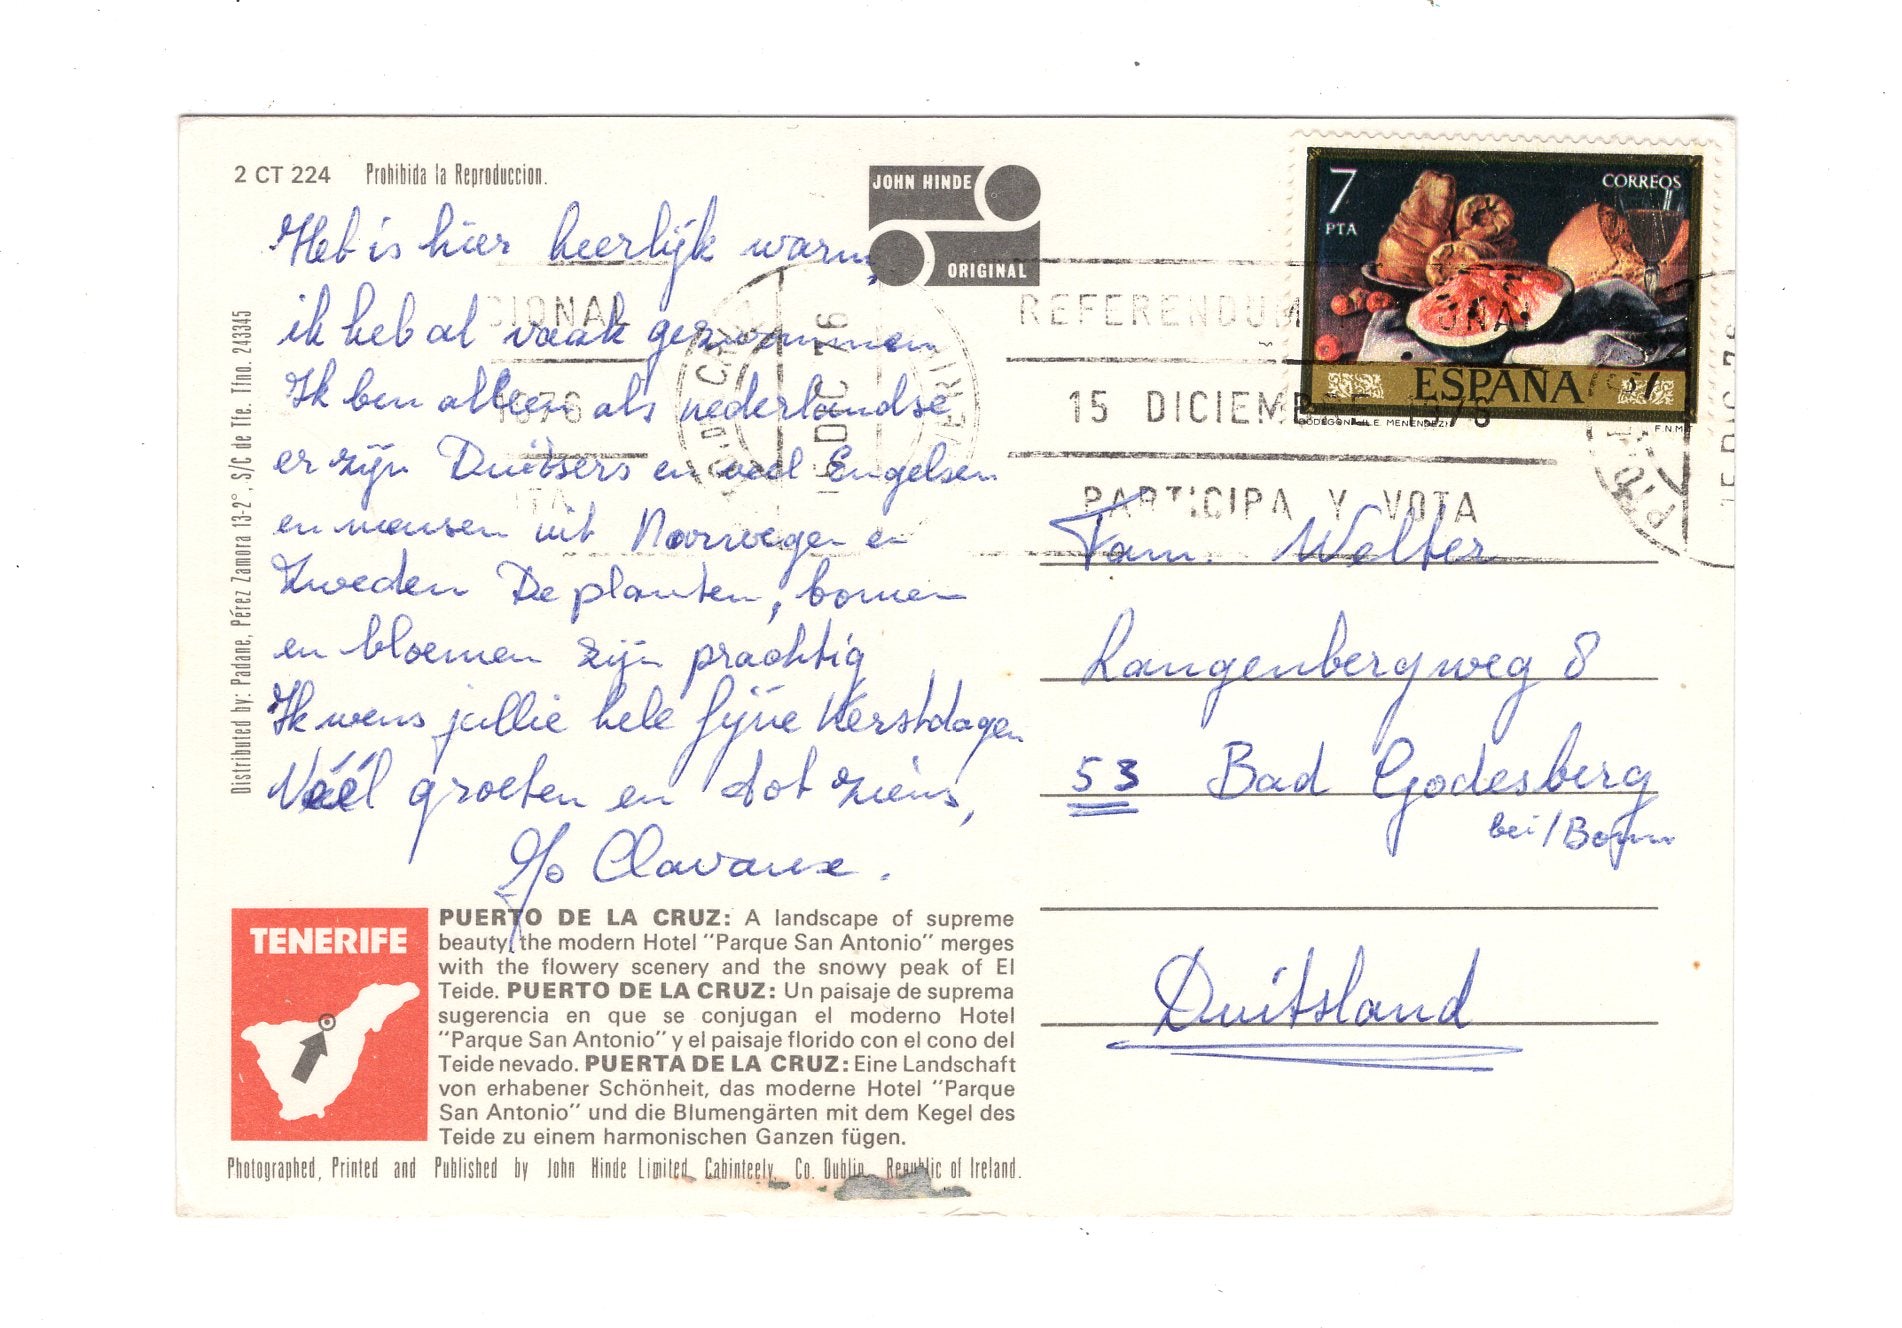 2 CT 224 Prohibida la Reproduccion.
JOHN HINDE
ORIGINAL
Het is hier heerlijk warm,
ik heb al vaak gezwommen
Ik ben alleen als nederlandse
er zijn Duitsers en veel Engelsen
en mensen uit Noorwegen en
Zweden De planten, bomen
en bloemen zijn prachtig
Ik wens jullie hele fijne Kerstdagen
Véél groeten en tot ziens,
Clavaux.
Distributed by: Padane, Pérez Zamora 13-2°, S/C de Tfe. Tfno. 243345
TENERIFE
PUERTO DE LA CRUZ: A landscape of supreme
beauty, the modern Hotel "Parque San Antonio" merges
with the flowery scenery and the snowy peak of El
Teide. PUERTO DE LA CRUZ: Un paisaje de suprema
sugerencia en que se conjugan el moderno Hotel
"Parque San Antonio" y el paisaje florido con el cono del
Teide nevado. PUERTA DE LA CRUZ: Eine Landschaft
von erhabener Schönheit, das moderne Hotel "Parque
San Antonio" und die Blumengärten mit dem Kegel des
Teide zu einem harmonischen Ganzen fügen.
Photographed, Printed and Published by John Hinde Limited, Cabinteely, Co. Dublin, Republic of Ireland.
7
PTA
CORREOS
ESPAÑA
BODEGON (L.E. MENENDEZ)
F.N.M.T.
REFERENDUM NACIONAL
15 DICIEMBRE 1976
PARTICIPA Y VOTA
DIC 76
Fam. Welter
Langenbergweg 8
53 Bad Godesberg
bei/Bonn
Duitsland